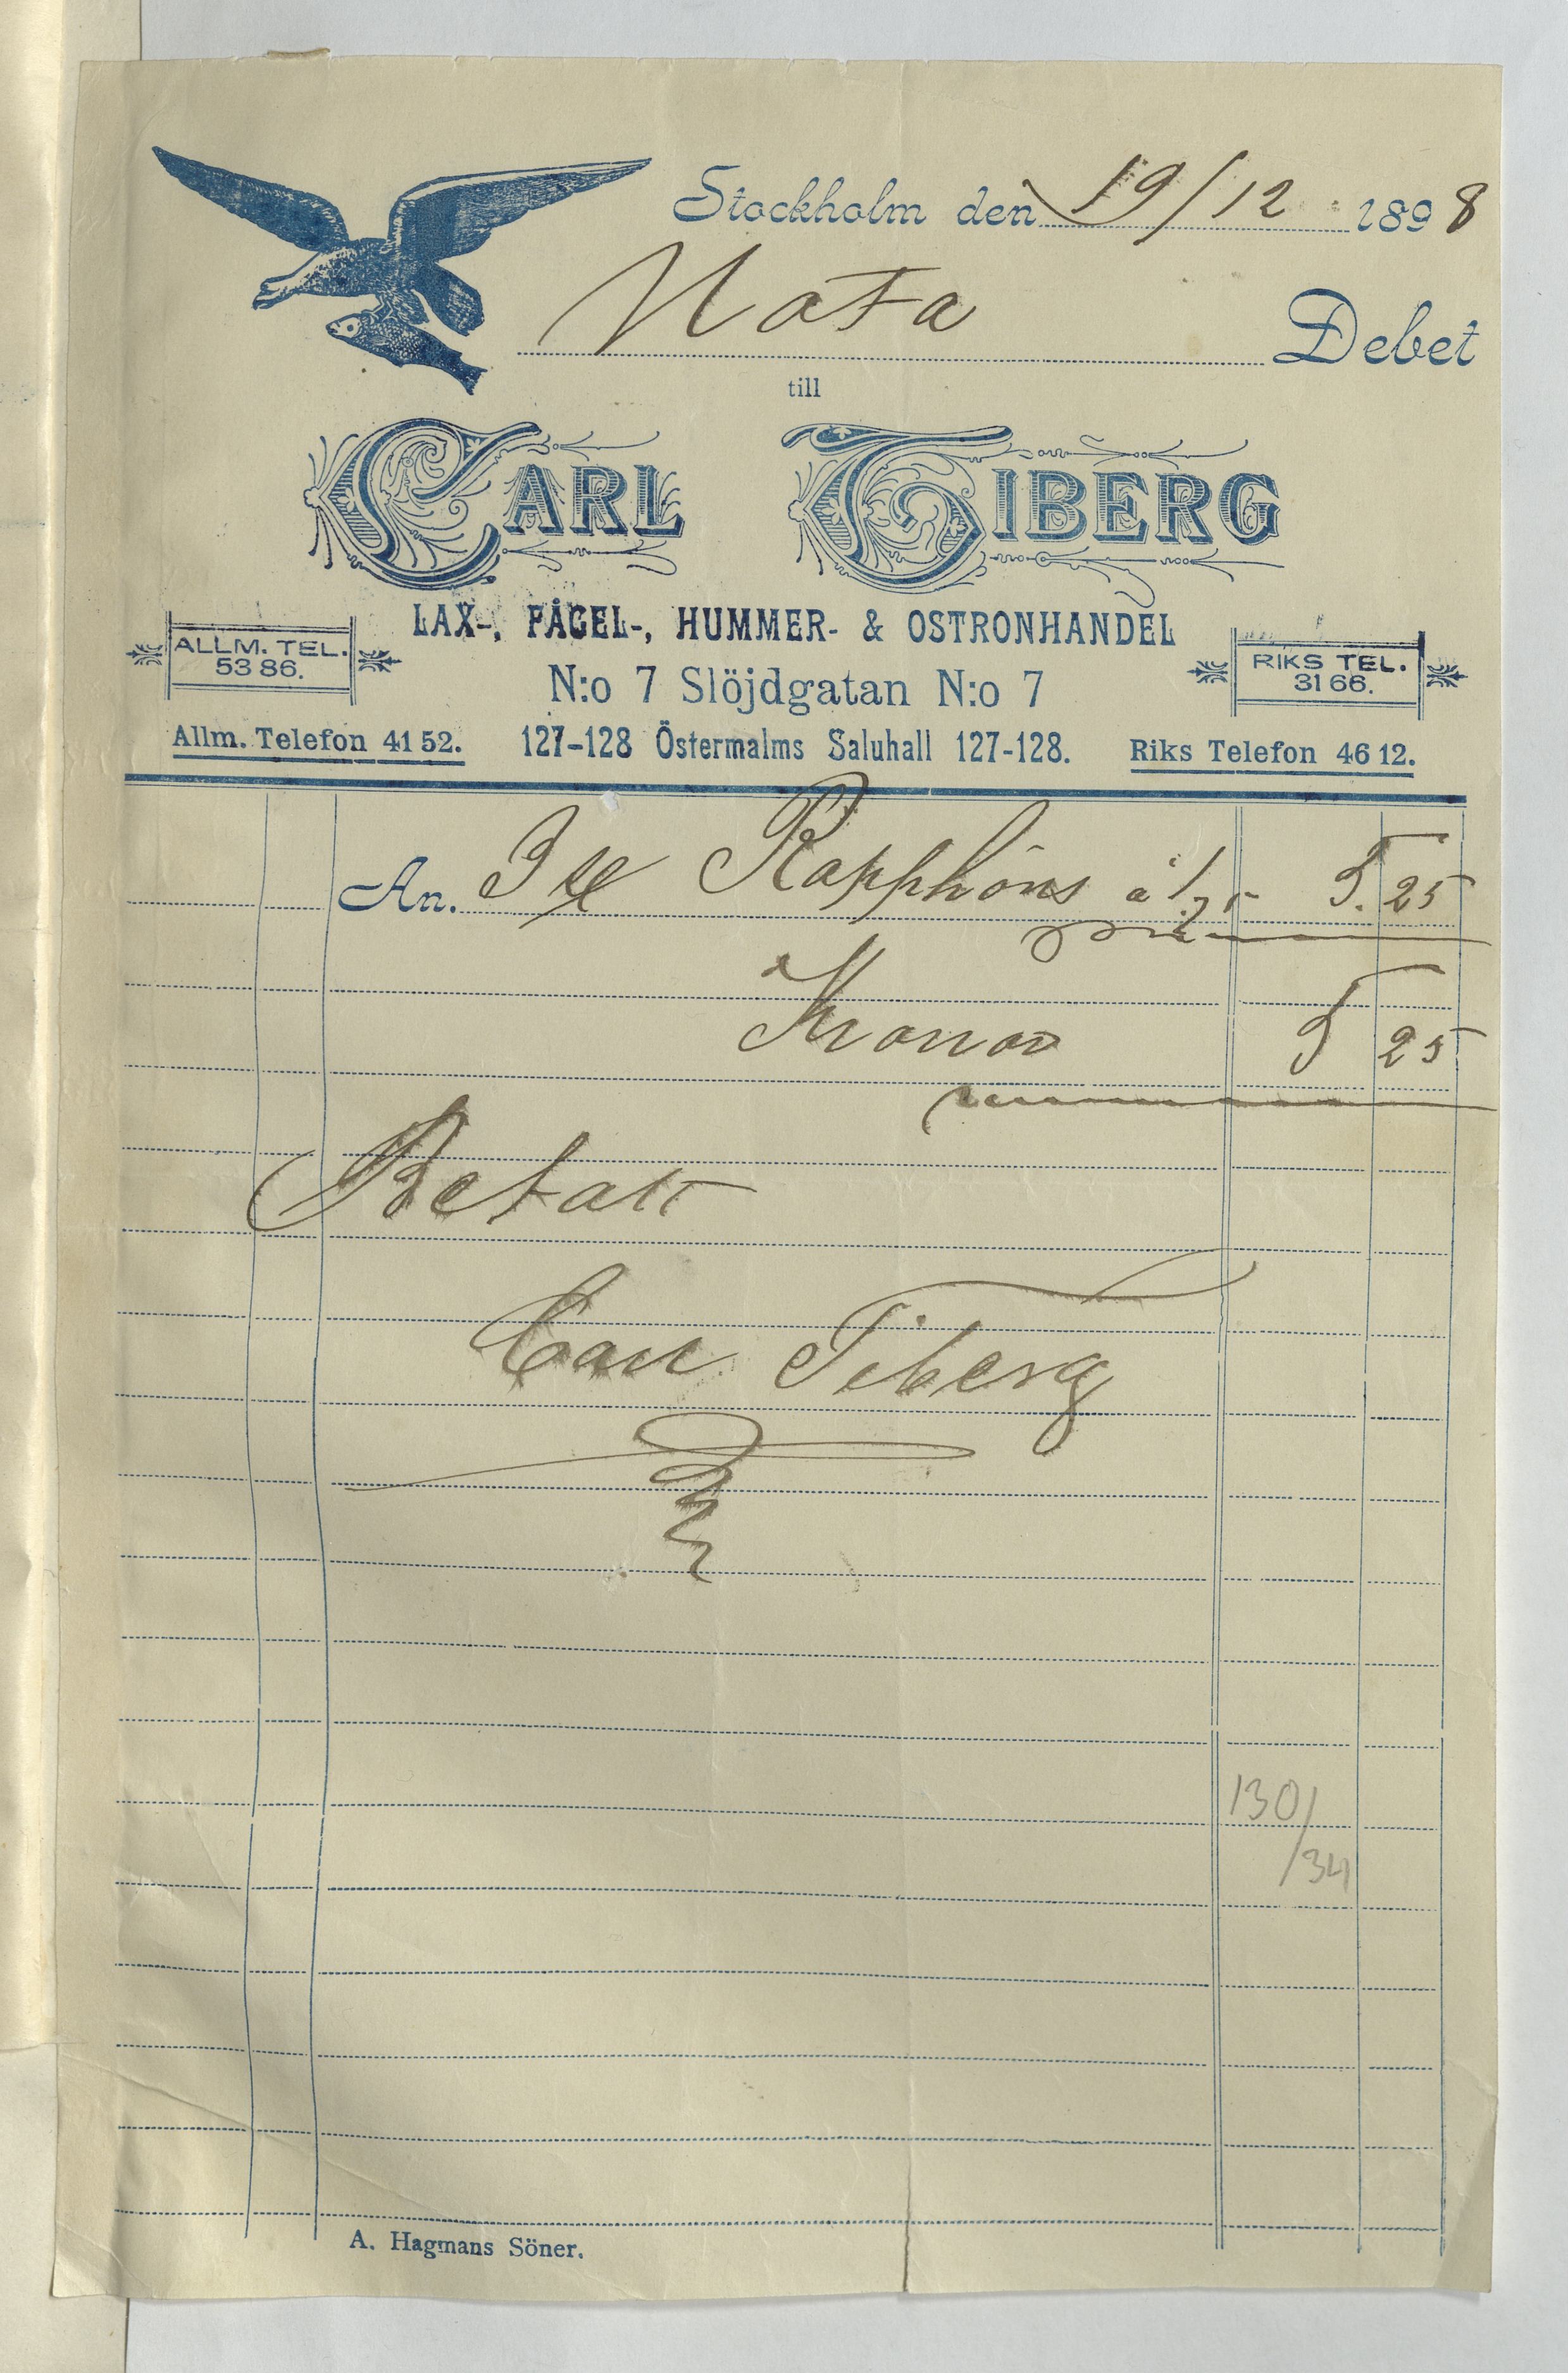 Stockholm den 19/12 1898
Nota Debet
till
CARL TIBERG
LAX-, FÅGEL-, HUMMER- & OSTRONHANDEL
ALLM. TEL.
53 86.
RIKS TEL.
31 66.
N:o 7 Slöjdgatan N:o 7
Allm. Telefon 41 52. 127-128 Östermalms Saluhall 127-128. Riks Telefon 46 12.
An. 3 st Rapphöns à 1.75 5.25
Kronor 5 25
Betalt
Carl Tiberg
130/
/34
A. Hagmans Söner.